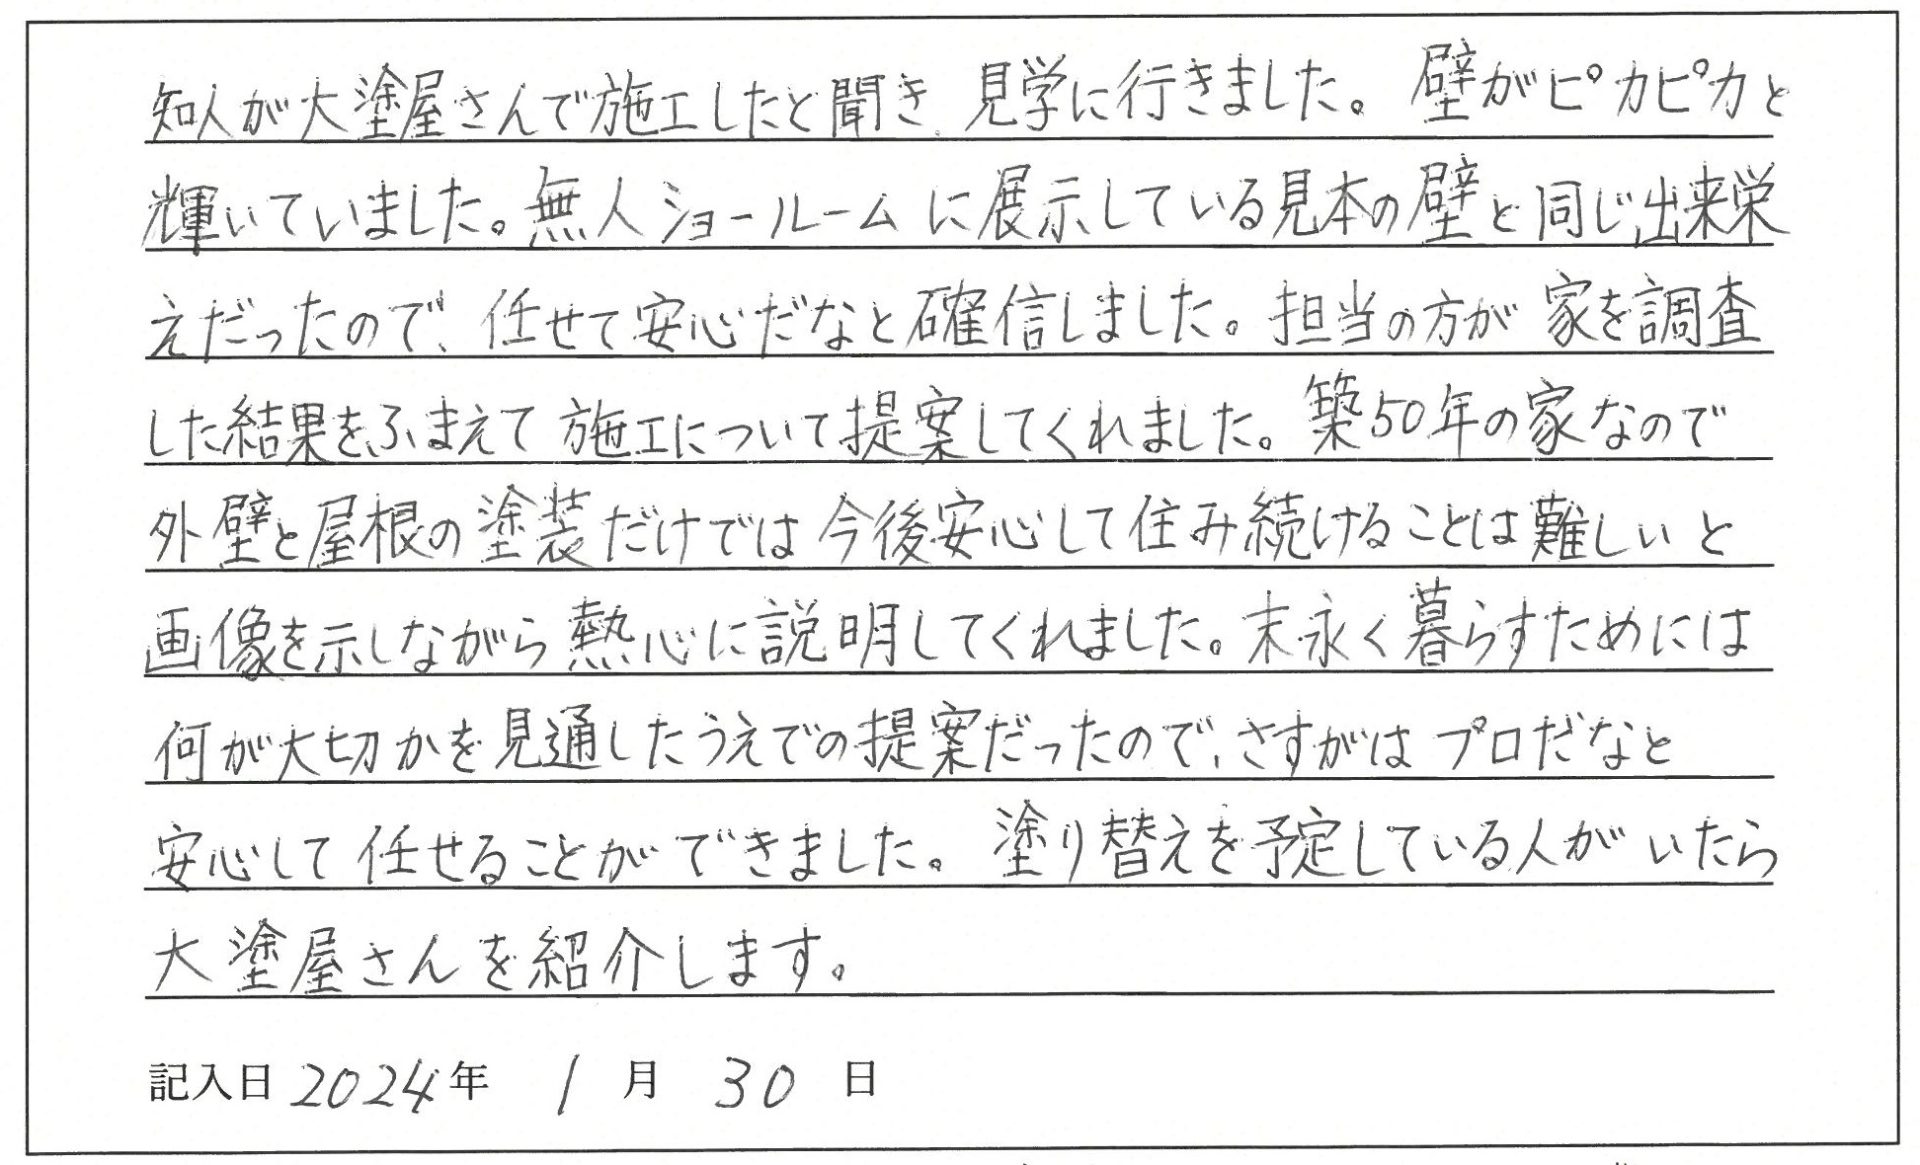 知人が大塗屋さんで施工したと聞き、見学に行きました。壁がピカピカと
輝いていました。無人ショールームに展示している見本の壁と同じ出来栄
えだったので、任せて安心だなと確信しました。担当の方が家を調査
した結果をふまえて施工について提案してくれました。築50年の家なので
外壁と屋根の塗装だけでは今後安心して住み続けることは難しいと
画像を示しながら熱心に説明してくれました。末永く暮らすためには
何が大切かを見通したうえでの提案だったので、さすがはプロだなと
安心して任せることができました。塗り替えを予定している人がいたら
大塗屋さんを紹介します。
記入日 2024年 1月 30日